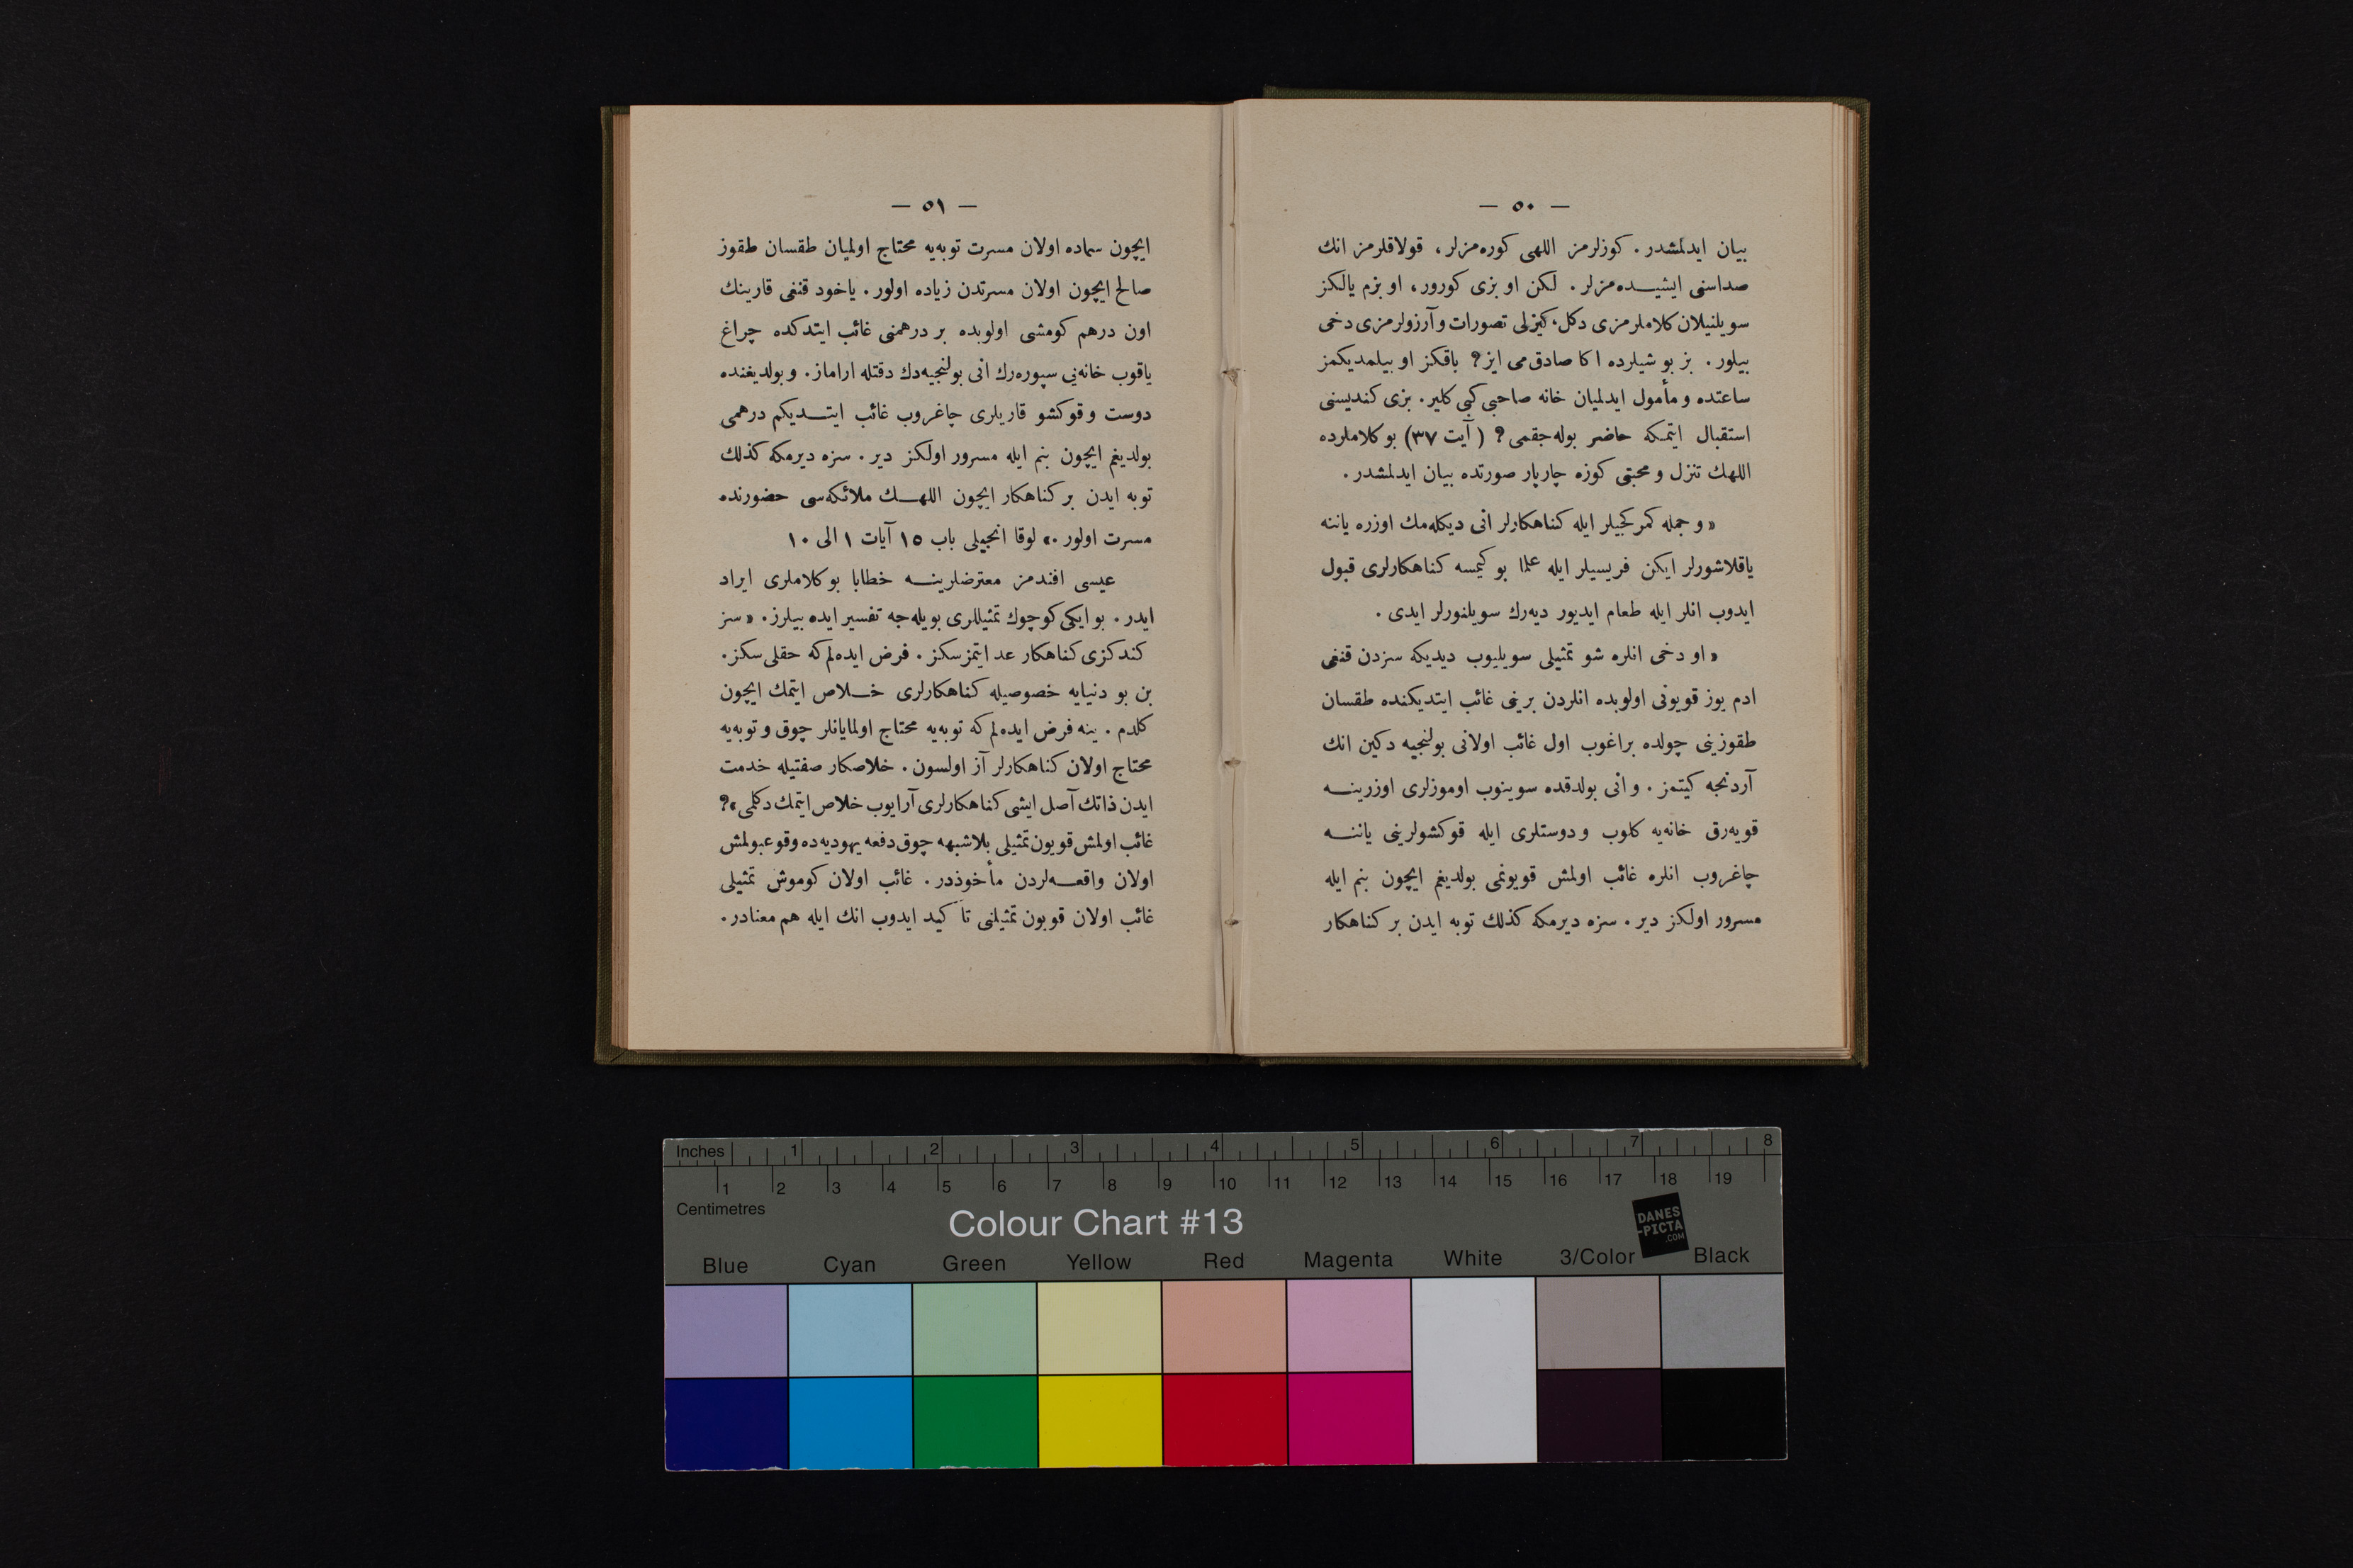 — ٥٠ —
بيان ايدلمشدر . كوزلرمز اللهى كوره‌مزلر ، قولاقلرمز انك
صداسنى ايشيده‌مزلر . لكن او بزى كورور ، او بزم يالكز
سويلنيلان كلاملرمزى دكل، كيزلى تصورات و آرزولرمزى دخى
بيلور . بز بو شيلرده اكا صادق‌مى ايز ? باقكز او بيلمديكمز
ساعتده و مأمول ايدلميان خانه صاحبى كبى كلير . بزى كنديسنى
استقبال ايتمكه حاضر بوله‌جقمى ? ( آيت ٣٧) بو كلاملرده
اللهك تنزل و محبتى كوزه چارپار صورتده بيان ايدلمشدر .
« و جمله كمركجيلر ايله كناهكارلر انى ديكله‌مك اوزره ياننه
ياقلاشورلر ايكن فريسيلر ايله علما بو كيمسه كناهكارلرى قبول
ايدوب انلر ايله طعام ايديور ديه‌رك سويلنورلر ايدى .
« او دخى انلره شو تمثيلى سويليوب ديديكه سزدن قنغى
ادم يوز قويونى اولوبده انلردن برينى غائب ايتديكنده طقسان
طقوزينى چولده براغوب اول غائب اولانى بولنجيه دكين انك
آردنجه كيتمز . و انى بولدقده سوينوب اوموزلرى اوزرينه
قويه‌رق خانه‌يه كلوب و دوستلرى ايله قوكشولرينى ياننه
چاغروب انلره غائب اولمش قويونمى بولديغم ايچون بنم ايله
مسرور اولكز دير . سزه ديرمكه كذلك توبه ايدن بر كناهكار
— ٥١ —
ايچون سماده اولان مسرت توبه‌يه محتاج اولميان طقسان طقوز
صالح ايچون اولان مسرتدن زياده اولور . ياخود قنغى قارينك
اون درهم كومشى اولوبده بر درهمنى غائب ايتدكده چراغ
ياقوب خانه‌يى سپوره‌رك انى بولنجيه‌دك دقتله اراماز . و بولديغنده
دوست و قوكشو قاريلرى چاغروب غائب ايتديكم درهمى
بولديغم ايچون بنم ايله مسرور اولكز دير . سزه ديرمكه كذلك
توبه ايدن بر كناهكار ايچون اللهك ملائكه‌سى حضورنده
مسرت اولور .» لوقا انجيلى باب ١٥ آيات ١ الى ١٠
عيسى افندمز معترضلرينه خطابا بو كلاملرى ايراد
ايدر . بو ايكى كوچوك تمثيللرى بويله‌جه تفسير ايده بيلرز . « سز
كندكزى كناهكار عد ايتمزسكز . فرض ايده‌لم كه حقلى سكز .
بن بو دنيايه خصوصيله كناهكارلرى خلاص ايتمك ايچون
كلدم . ينه فرض ايده‌لم كه توبه‌يه محتاج اولمايانلر چوق و توبه‌يه
محتاج اولان كناهكارلر آز اولسون . خلاصكار صفتيله خدمت
ايدن ذاتك آصل ايشى كناهكارلرى آرايوب خلاص ايتمك دكلمى »?
غائب اولمش قويون تمثيلى بلاشبهه چوق دفعه يهوديه‌ده وقوعبولمش
اولان واقعه‌لردن مأخوذدر . غائب اولان كوموش تمثيلى
غائب اولان قويون تمثيلنى تأكيد ايدوب انك ايله هم معنادر .
Inches 1 2 3 4 5 6 7 8
1 2 3 4 5 6 7 8 9 10 11 12 13 14 15 16 17 18 19
Centimetres
Colour Chart #13
DANES
-PICTA
.COM
Blue Cyan Green Yellow Red Magenta White 3/Color Black